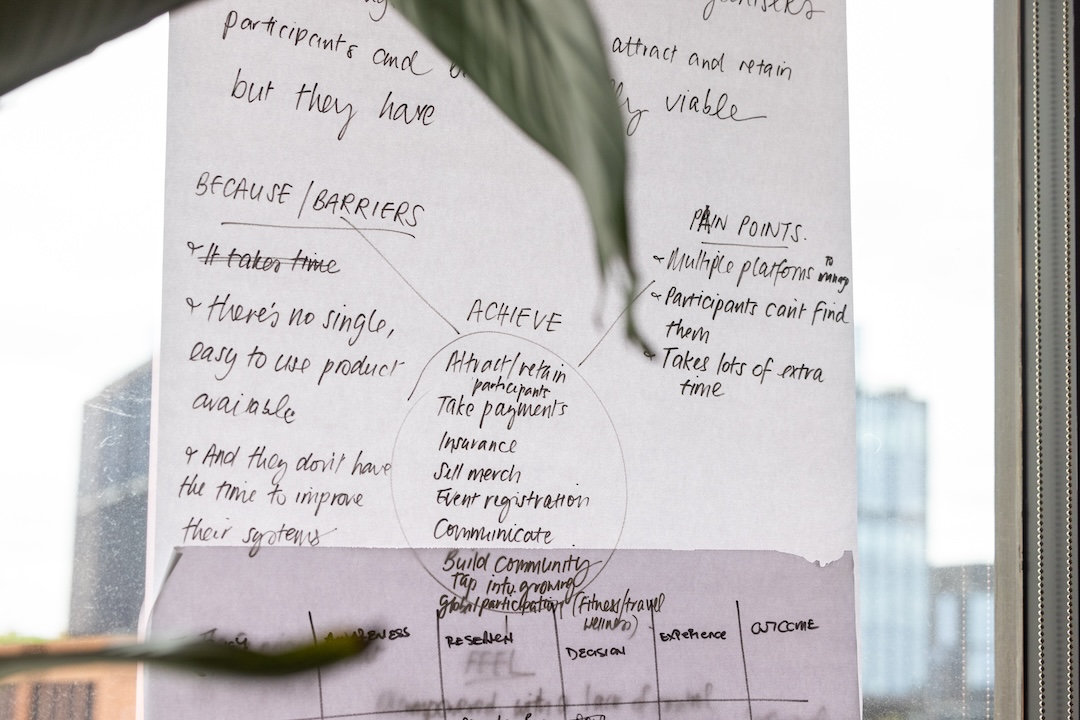 participants and
attract and retain
but they have
viable
BECAUSE / BARRIERS
It takes time
there's no single,
easy to use product
available
And they don't have
the time to improve
their systems
ACHIEVE
Attract/retain
participants
Take payments
Insurance
Sell merch
Event registration
Communicate
Build Community
Tap into growing
global participation (Fitness/travel
wellness)
PAIN POINTS.
Multiple platforms to
manage
Participants can't find
them
Takes lots of extra
time
RESEARCH
DECISION
EXPERIENCE
OUTCOME
FEEL